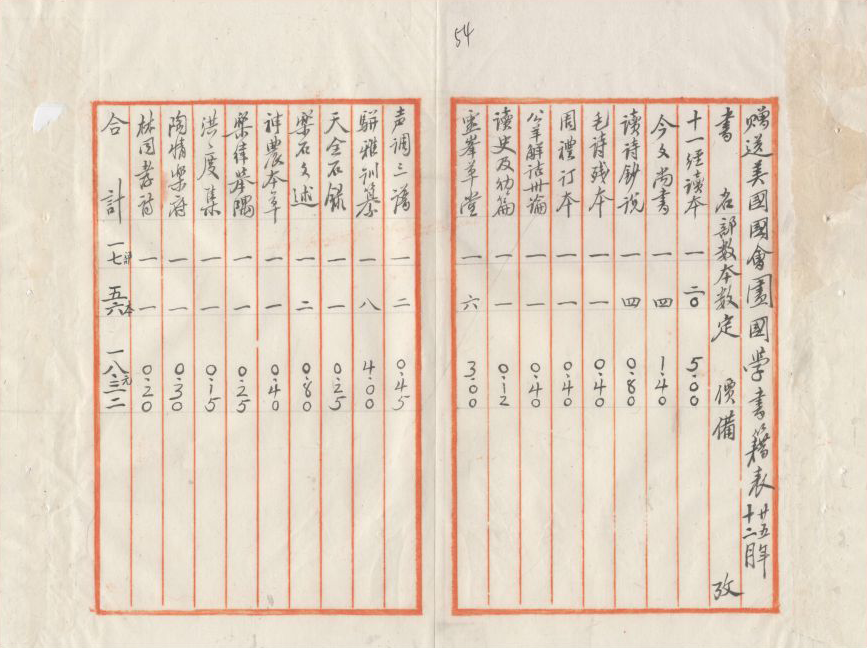 54
贈送美國國會圖國學書籍表 廿五年十二月
書名 部數 本數 定價 備攷
十一經讀本 一 二〇 5.00
今文尚書 一 四 1.40
讀詩鈔説 一 四 0.80
毛詩残本 一 一 0.40
周禮訂本 一 一 0.40
公羊解詁卅論 一 一 0.40
讀史及幼篇 一 一 0.12
靈峯草堂 一 六 3.00
声调三譜 一 二 0.45
駢雅训纂 一 八 4.00
天全石録 一 一 0.25
樂石文述 一 二 0.80
神農本草 一 一 0.40
樂律舉隅 一 一 0.25
洪度集 一 一 0.15
陶情樂府 一 一 0.30
林同孝詩 一 一 0.20
合計 一七部 五六本 一八元.三二